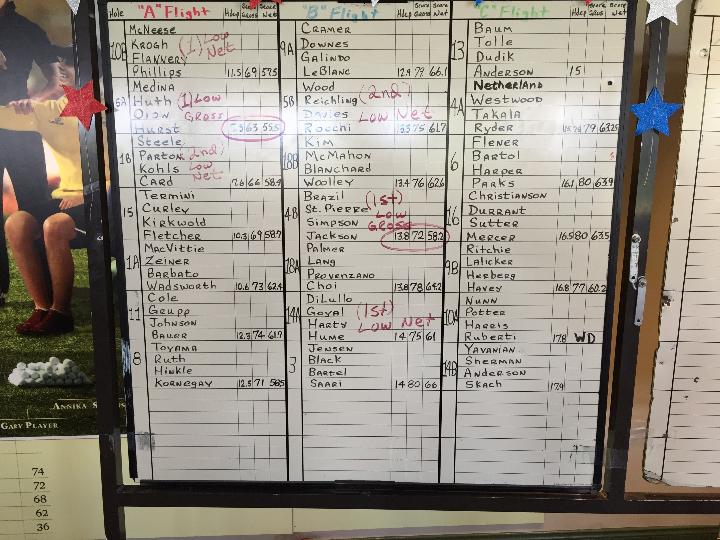 Hole "A" Flight Hdcp Score Gross Score Net
McNeese
10B Krogh (1) Low Net
Flannery
Phillips 11.5 69 57.5
Medina
5A Huth (1) Low Gross
Hurst 63 55.5
Steele
1B Parton (2nd) Low Net
Kohls
Card 7.6 66 58.4
Termini
15 Curley
Kirkwold
Fletcher 10.3 69 58.7
MacVittie
1A Zeiner
Barbato
Wadsworth 10.6 73 62.4
Cole
11 Grupp
Johnson
Bauer 12.3 74 61.7
Toyama
8 Ruth
Hinkle
Kornegay 12.5 71 58.5
"B" Flight Hdcp Score Gross Score Net
Cramer
9A Downes
Galindo
LeBlanc 12.9 79 66.1
Wood
5B Reichling (2nd)
Davies Low Net
Rocchi 13.3 75 61.7
Kim
18B McMahon
Blanchard
Woolley 13.4 76 62.6
Brazil (1st)
4B St. Pierre Low
Simpson Gross
Jackson 13.8 72 58.2
Palmer
18A Lang
Provenzano
Choi 13.8 78 64.2
DiLullo
14A Goyal (1st)
Harty Low Net
Hume 14 75 61
Jensen
3 Black
Bartel
Saari 14 80 66
"C" Flight Hdcp Score Gross Score Net
Baum
13 Tolle
Dudik
Anderson 15
Netherland
4A Westwood
Takala
Ryder 79 63.25
Flener
6 Bartol
Harper
Parks 16.1 80 63.9
Christianson
16 Durrant
Sutter
Mercer 16.5 80 63.5
Ritchie
9B Lalicker
Herberg
Havey 16.8 77 60.2
Nunn
10A Potter
Harris
Ruberti 17.8 WD
Yavanian
14B Sherman
Anderson
Skach 17.9
Annika S
Gary Player
74
72
68
62
36